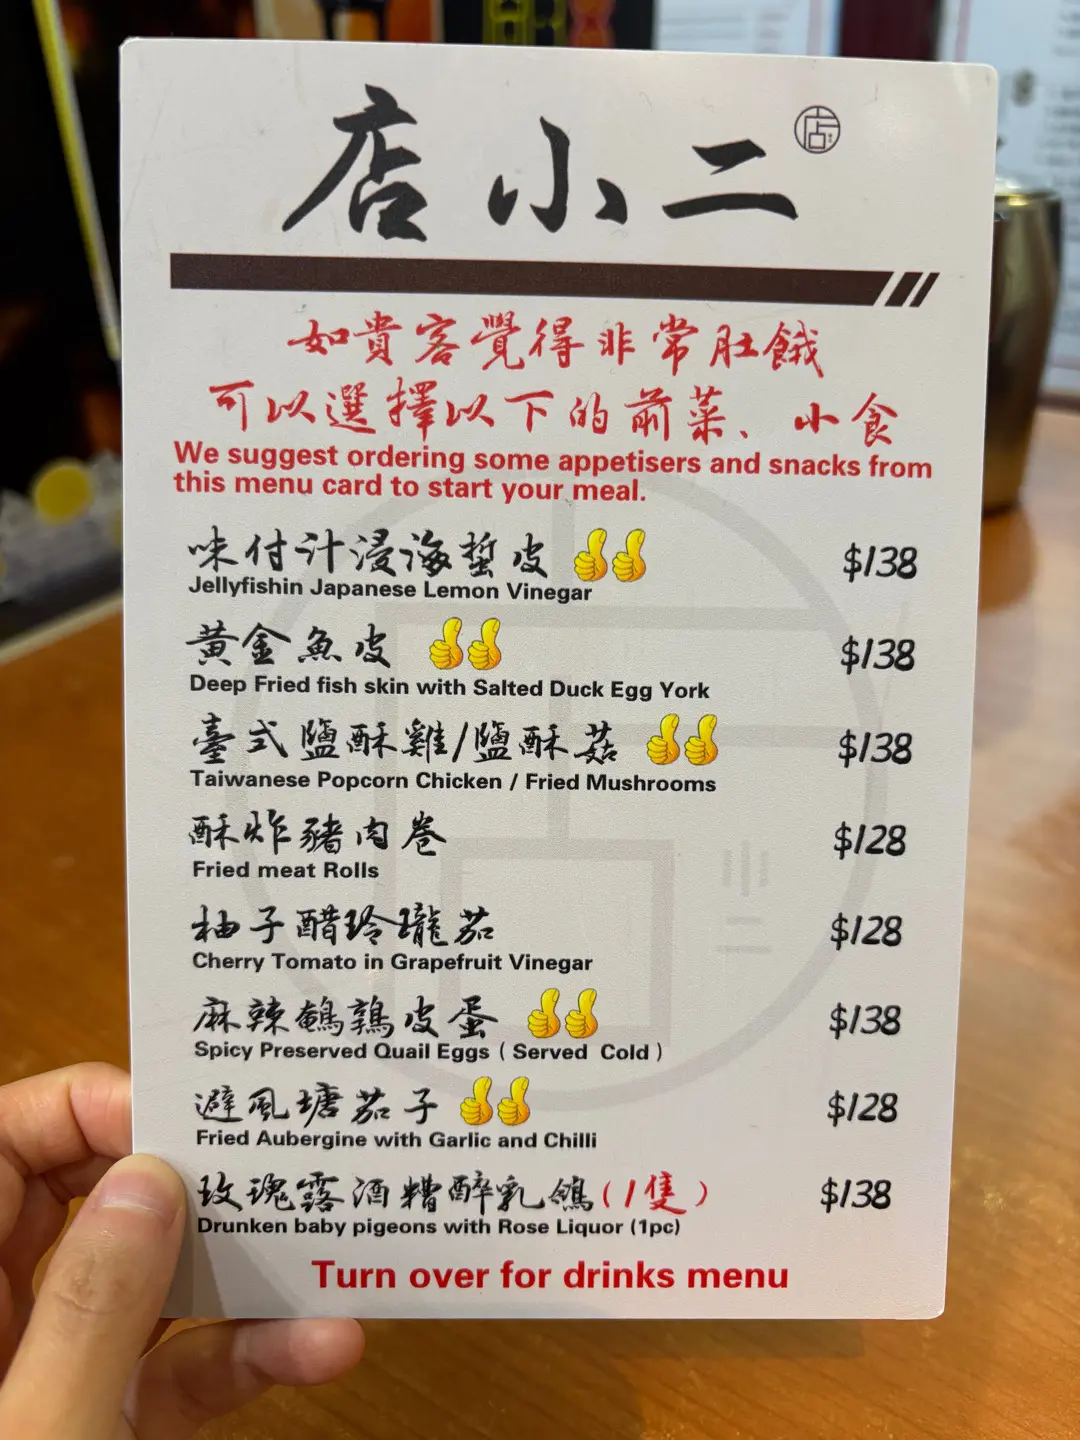 店小二
店
如貴客覺得非常肚餓
可以選擇以下的前菜、小食
We suggest ordering some appetisers and snacks from
this menu card to start your meal.
味付汁浸海蜇皮 $138
Jellyfishin Japanese Lemon Vinegar
黃金魚皮 $138
Deep Fried fish skin with Salted Duck Egg York
臺式鹽酥雞/鹽酥菇 $138
Taiwanese Popcorn Chicken / Fried Mushrooms
酥炸豬肉卷 $128
Fried meat Rolls
柚子醋玲瓏茄 $128
Cherry Tomato in Grapefruit Vinegar
麻辣鵪鶉皮蛋 $138
Spicy Preserved Quail Eggs ( Served Cold )
避風塘茄子 $128
Fried Aubergine with Garlic and Chilli
玫瑰露酒糟醉乳鴿(1隻) $138
Drunken baby pigeons with Rose Liquor (1pc)
Turn over for drinks menu